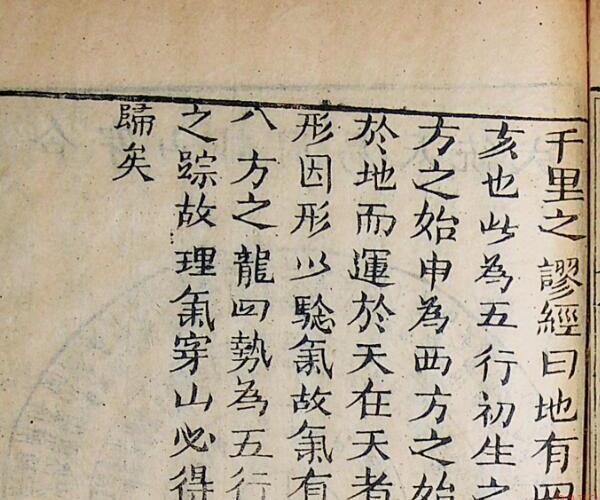 千里之謬經曰地有四
亥也此為五行初生之
方之始申為西方之始
於地而運於天在天者
形因形以騐氣故氣有
八方之龍四勢為五行
之踪故理氣穿山必得
歸矣